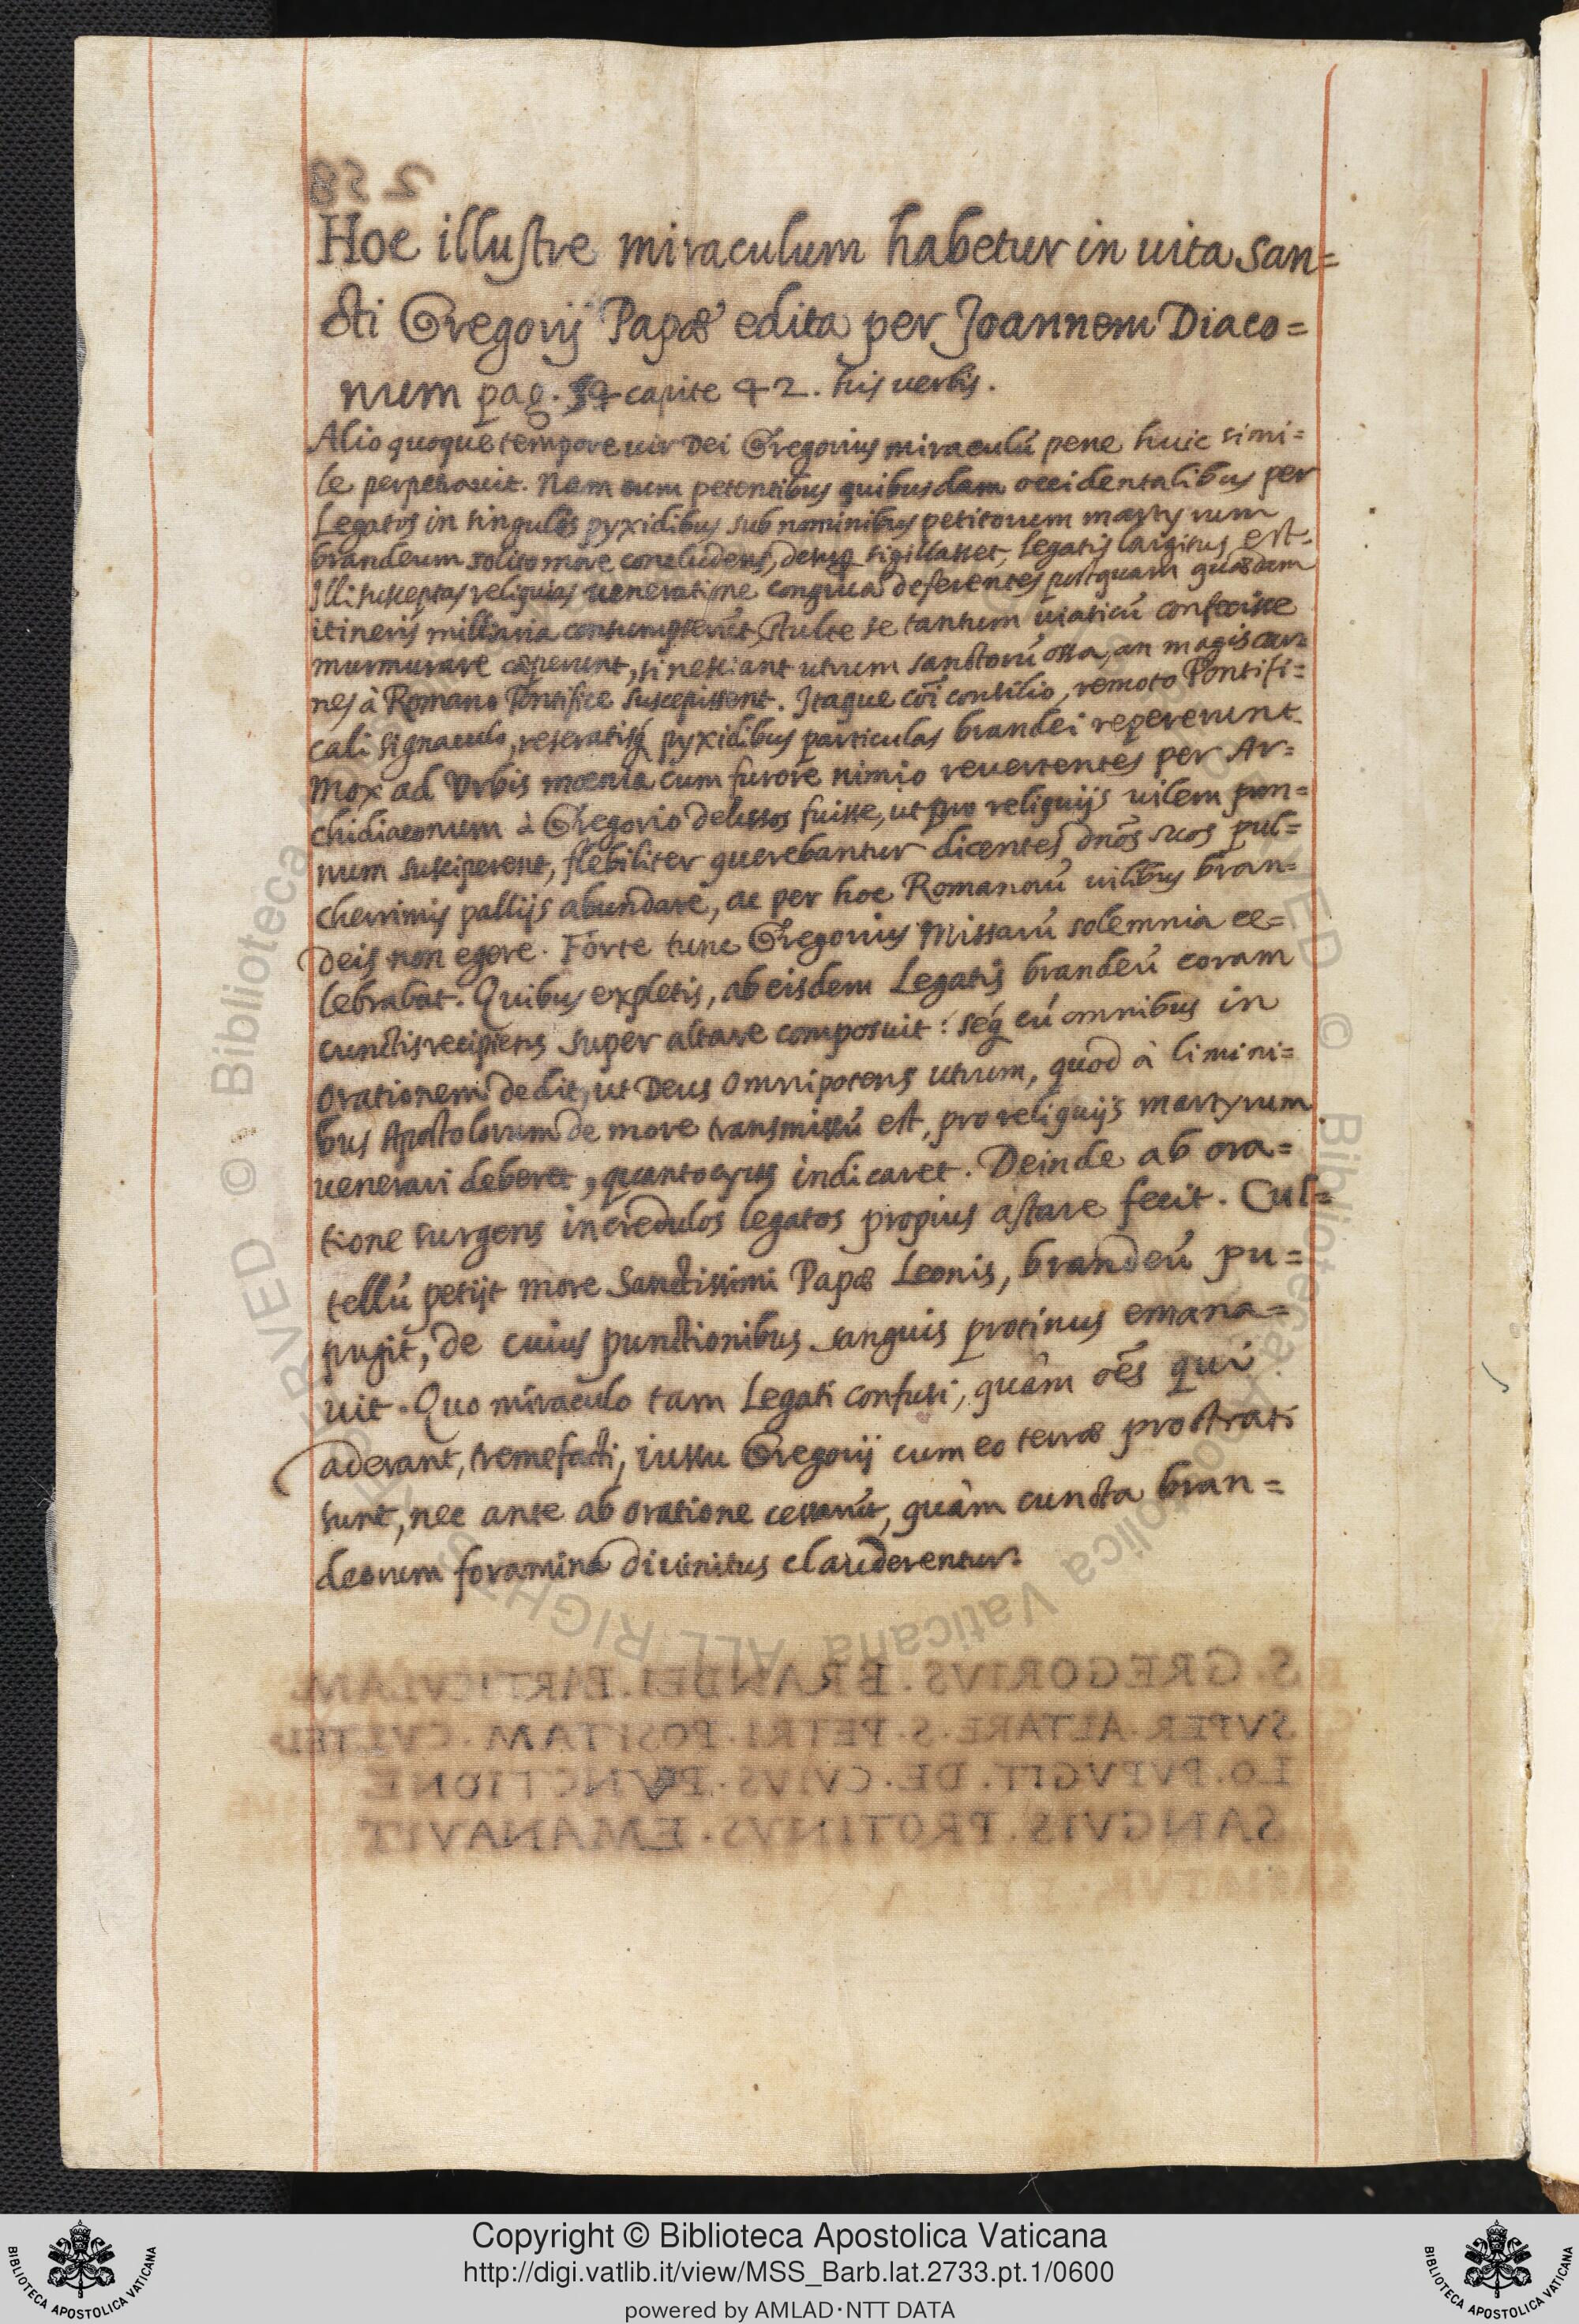 Hoc illustre miraculum habetur in uita San=
cti Gregorij Papæ edita per Joannem Diaco=
num pag. 59 capite 42. his uerbis.
Alio quoque tempore uir Dei Gregorius miraculũ pene huic simi=
le perpetrauit. Nam cum petentibus quibusdam occidentalibus per
Legatos in singulis pyxidibus sub nominibus petitorum martyrum
brandeum solito more concludens, desuꝑ sigillasset, legatis largitus est.
Illi susceptas reliquias ueneratione congrua deferentes postquam quædam
itineris milliaria contempserũt, stulte se tantum uiaticũ confecisse
murmurare cæperunt, si nesciant utrum sanctorũ ossa, an magis car=
nes à Romano Pontifice suscepissent. Itaque cõi consilio, remoto Pontifi=
cali signaculo, reseratisq́ pyxidibus particulas brandei repererunt.
Mox ad Vrbis mœnia cum furore nimio reuertentes per Ar=
chidiaconum à Gregorio delusos fuisse, ut pro reliquijs uilem pan=
num susciperent, flebiliter querebantur dicentes dnõs suos pul=
cherrimis pallijs abundare, ac per hoc Romanorũ uilibus bran=
deis non egere. Forte tunc Gregorius Missarũ solemnia ce=
lebrabat. Quibus expletis, ab eisdem Legatis brandeũ coram
cunctis recipiens super altare composuit: seq́ cũ omnibus in
orationem dedit, ut Deus omnipotens utrum, quod à limini=
bus Apostolorum de more transmissũ est, pro reliquijs martyrum
uenerari deberet, quantocyus indicaret. Deinde ab ora=
tione surgens incredulos legatos propius astare fecit. Cul=
tellũ petijt more Sanctissimi Papæ Leonis, brandeũ pu=
pugit, de cuius punctionibus sanguis protinus emana=
uit. Quo miraculo tam Legati confusi, quàm oẽs qui
aderant, tremefacti, iussu Gregorij cum eo terræ prostrati
sunt, nec ante ab oratione cessarũt, quàm cuncta bran=
deorum foramina diuinitus clauderentur.
S GREGORIVS. BRANDEI. PARTICVLAM
SVPER. ALTARE. S. PETRI. POSITAM. CVLTEL
LO. PVPVGIT. DE. CVIVS. PVNCTIONE
SANGVIS. PROTINVS. EMANAVIT
© Biblioteca Apostolica Vaticana ALL RIGHTS RESERVED
Copyright © Biblioteca Apostolica Vaticana
http://digi.vatlib.it/view/MSS_Barb.lat.2733.pt.1/0600
powered by AMLAD·NTT DATA
BIBLIOTECA APOSTOLICA VATICANA
BIBLIOTECA APOSTOLICA VATICANA